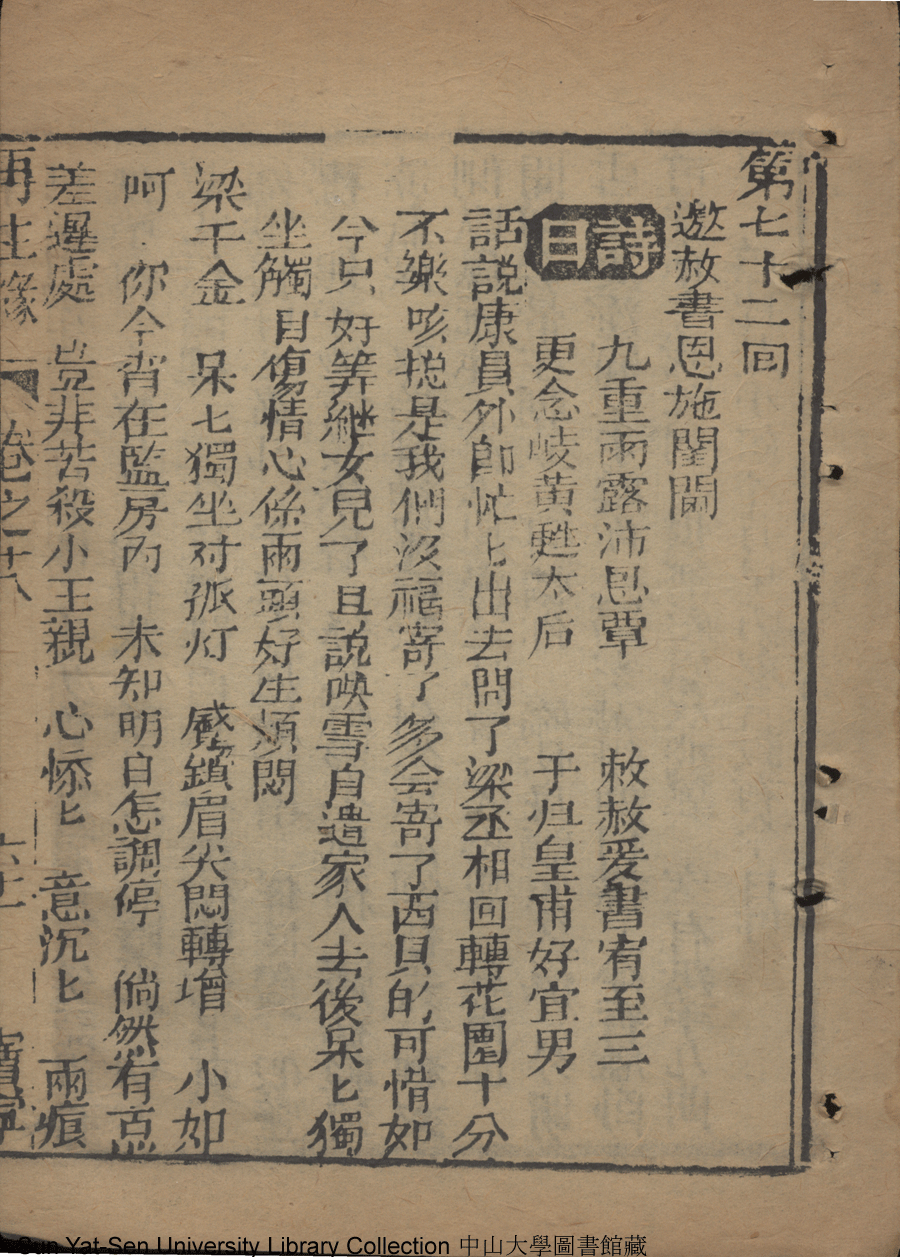 第七十二回
邀赦書恩施閨閫
詩曰
九重雨露沛恩覃　敕赦爰書宥至三
更念岐黄甦太后　于归皇甫好宜男
話說康員外郎忙匕出去問了梁丞相回轉花園十分
不樂咳捴是我們没福寄了多会寄了西貝的可惜如
今只好筭継女兒了且説映雪自遣家人去後呆匕獨
坐觸目傷情心係兩頭好生煩悶
梁千金　呆匕獨坐对孤灯　感鎖眉尖悶轉增　小如
呵　你今宵在監房内　未知明白怎調停　倘然有点
差遲處　豈非苦殺小王親　心悿匕　意沉匕　兩痕
再生緣　卷之十八　寳寧
Sun Yat-Sen University Library Collection 中山大學圖書館藏